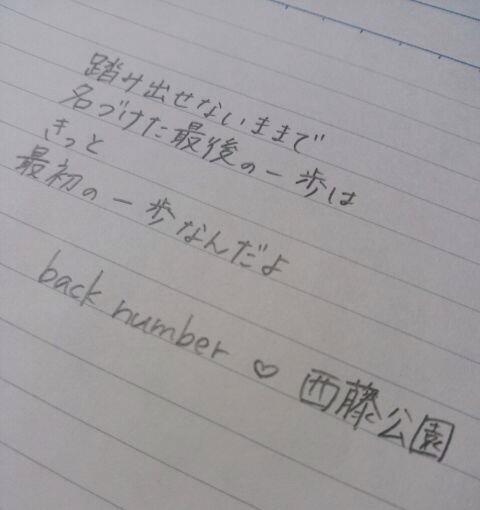 踏み出せないままで
名づけた最後の一歩は
きっと
最初の一歩なんだよ
back number ♡ 西藤公園